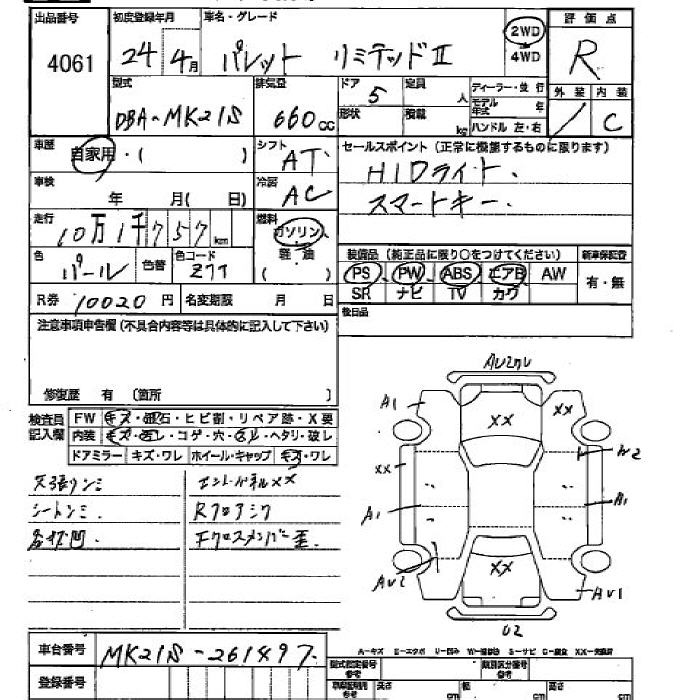 出品番号 4061
初度登録年月 24年 4月
車名・グレード パレット リミテッドⅡ
2WD 4WD
評価点 R
外装 内装 C
型式 DBA-MK21S
排気量 660cc
ドア 5
形状
定員 人
積載 kg
ディーラー・並行
モデル年式 年
ハンドル 左・右
車歴 自家用・( )
シフト AT
車検 年 月( 日)
冷房 AC
セールスポイント (正常に機能するものに限ります)
HIDライト.
スマートキー.
走行 10万1千757km
燃料 ガソリン 軽・油 ( )
色 パール 色替 色コード Z7T
装備品 (純正品に限り○をつけてください)
新車保証書 有・無
PS PW ABS エアB AW
SR ナビ TV カワ
R券 10020円 名変期限 月 日
後日品
注意事項申告欄 (不具合内容等は具体的に記入して下さい)
修復歴 有 〔箇所 〕
検査員記入欄
FW キズ・飛石・ヒビ割・リペア跡・X要
内装 キズ・汚レ・コゲ・穴・ヘタリ・破レ
ドアミラー キズ・ワレ ホイール・キャップ キズ・ワレ
シートシミ
各部凹.
Rフロアシワ
Fクロスメンバー歪.
A1
XX
XX
XX
A1
A1
AU2
XX
AU1
U2
A-キズ E-エクボ U-凹み S-サビ
車台番号 MK21S-261497.
登録番号
型式指定番号 参考
類別区分番号 参考
長さ cm 幅 cm 高さ cm